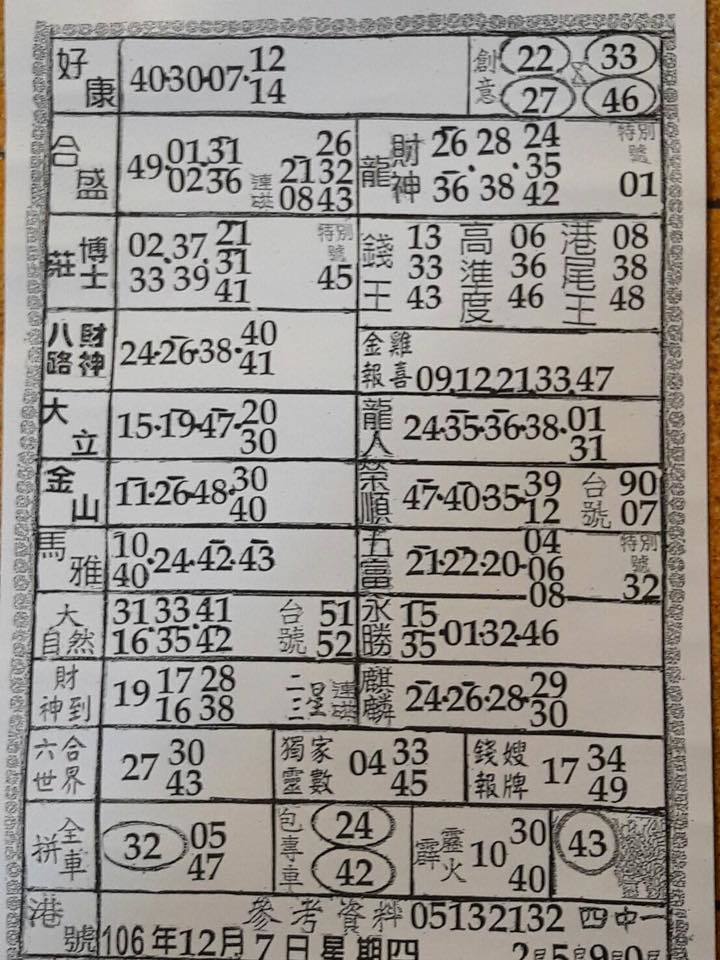 好康 40·30·07·12 14 創意 22 33 27 46
合盛 49·01 02·31 36 連碰 21 08 26 32 43
龍財神 26 36·28 38·24 35 42 特別號 01
莊博士 02 33·37 39·21 31 41 特別號 45
錢王 13 33 43 高進度 06 36 46 港尾王 08 38 48
八路財神 24·26·38·40 41
金雞報喜 09.12.21.33.47
大立 15·19·47·20 30
龍人 24·35·36·38·01 31
金山 11·26·48·30 40
榮順 47·40·35·39 12 台號 90 07
馬雅 10 40·24·42·43
五富 21·22·20·04 06 08 特別號 32
大自然 31 16·33 35·41 42 台號 51 52
永勝 15 35·01·32·46
財神到 19 17 16 28 38 二三星連碰
麒麟 24·26·28·29 30
六合世界 27 30 43
獨家靈數 04 33 45
錢嫂報牌 17 34 49
全車拼 32 05 47
包專車 24 42
霹靈火 10 30 40
43
港號 參考資料 05132132 四中一
106年12月7日星期四